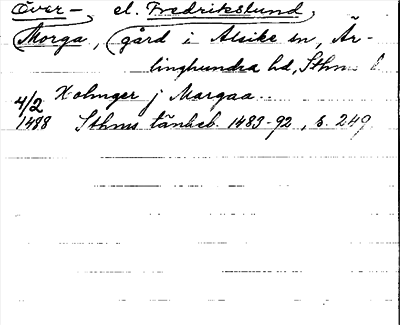 Över-, el. Fredrikslund,
Morga, (gård i Alsike sn, Är-
linghundra hd, Sthms l.
4/2 Holmger j Morgaa..
1488 Sthms tänkeb. 1483-92, s. 249